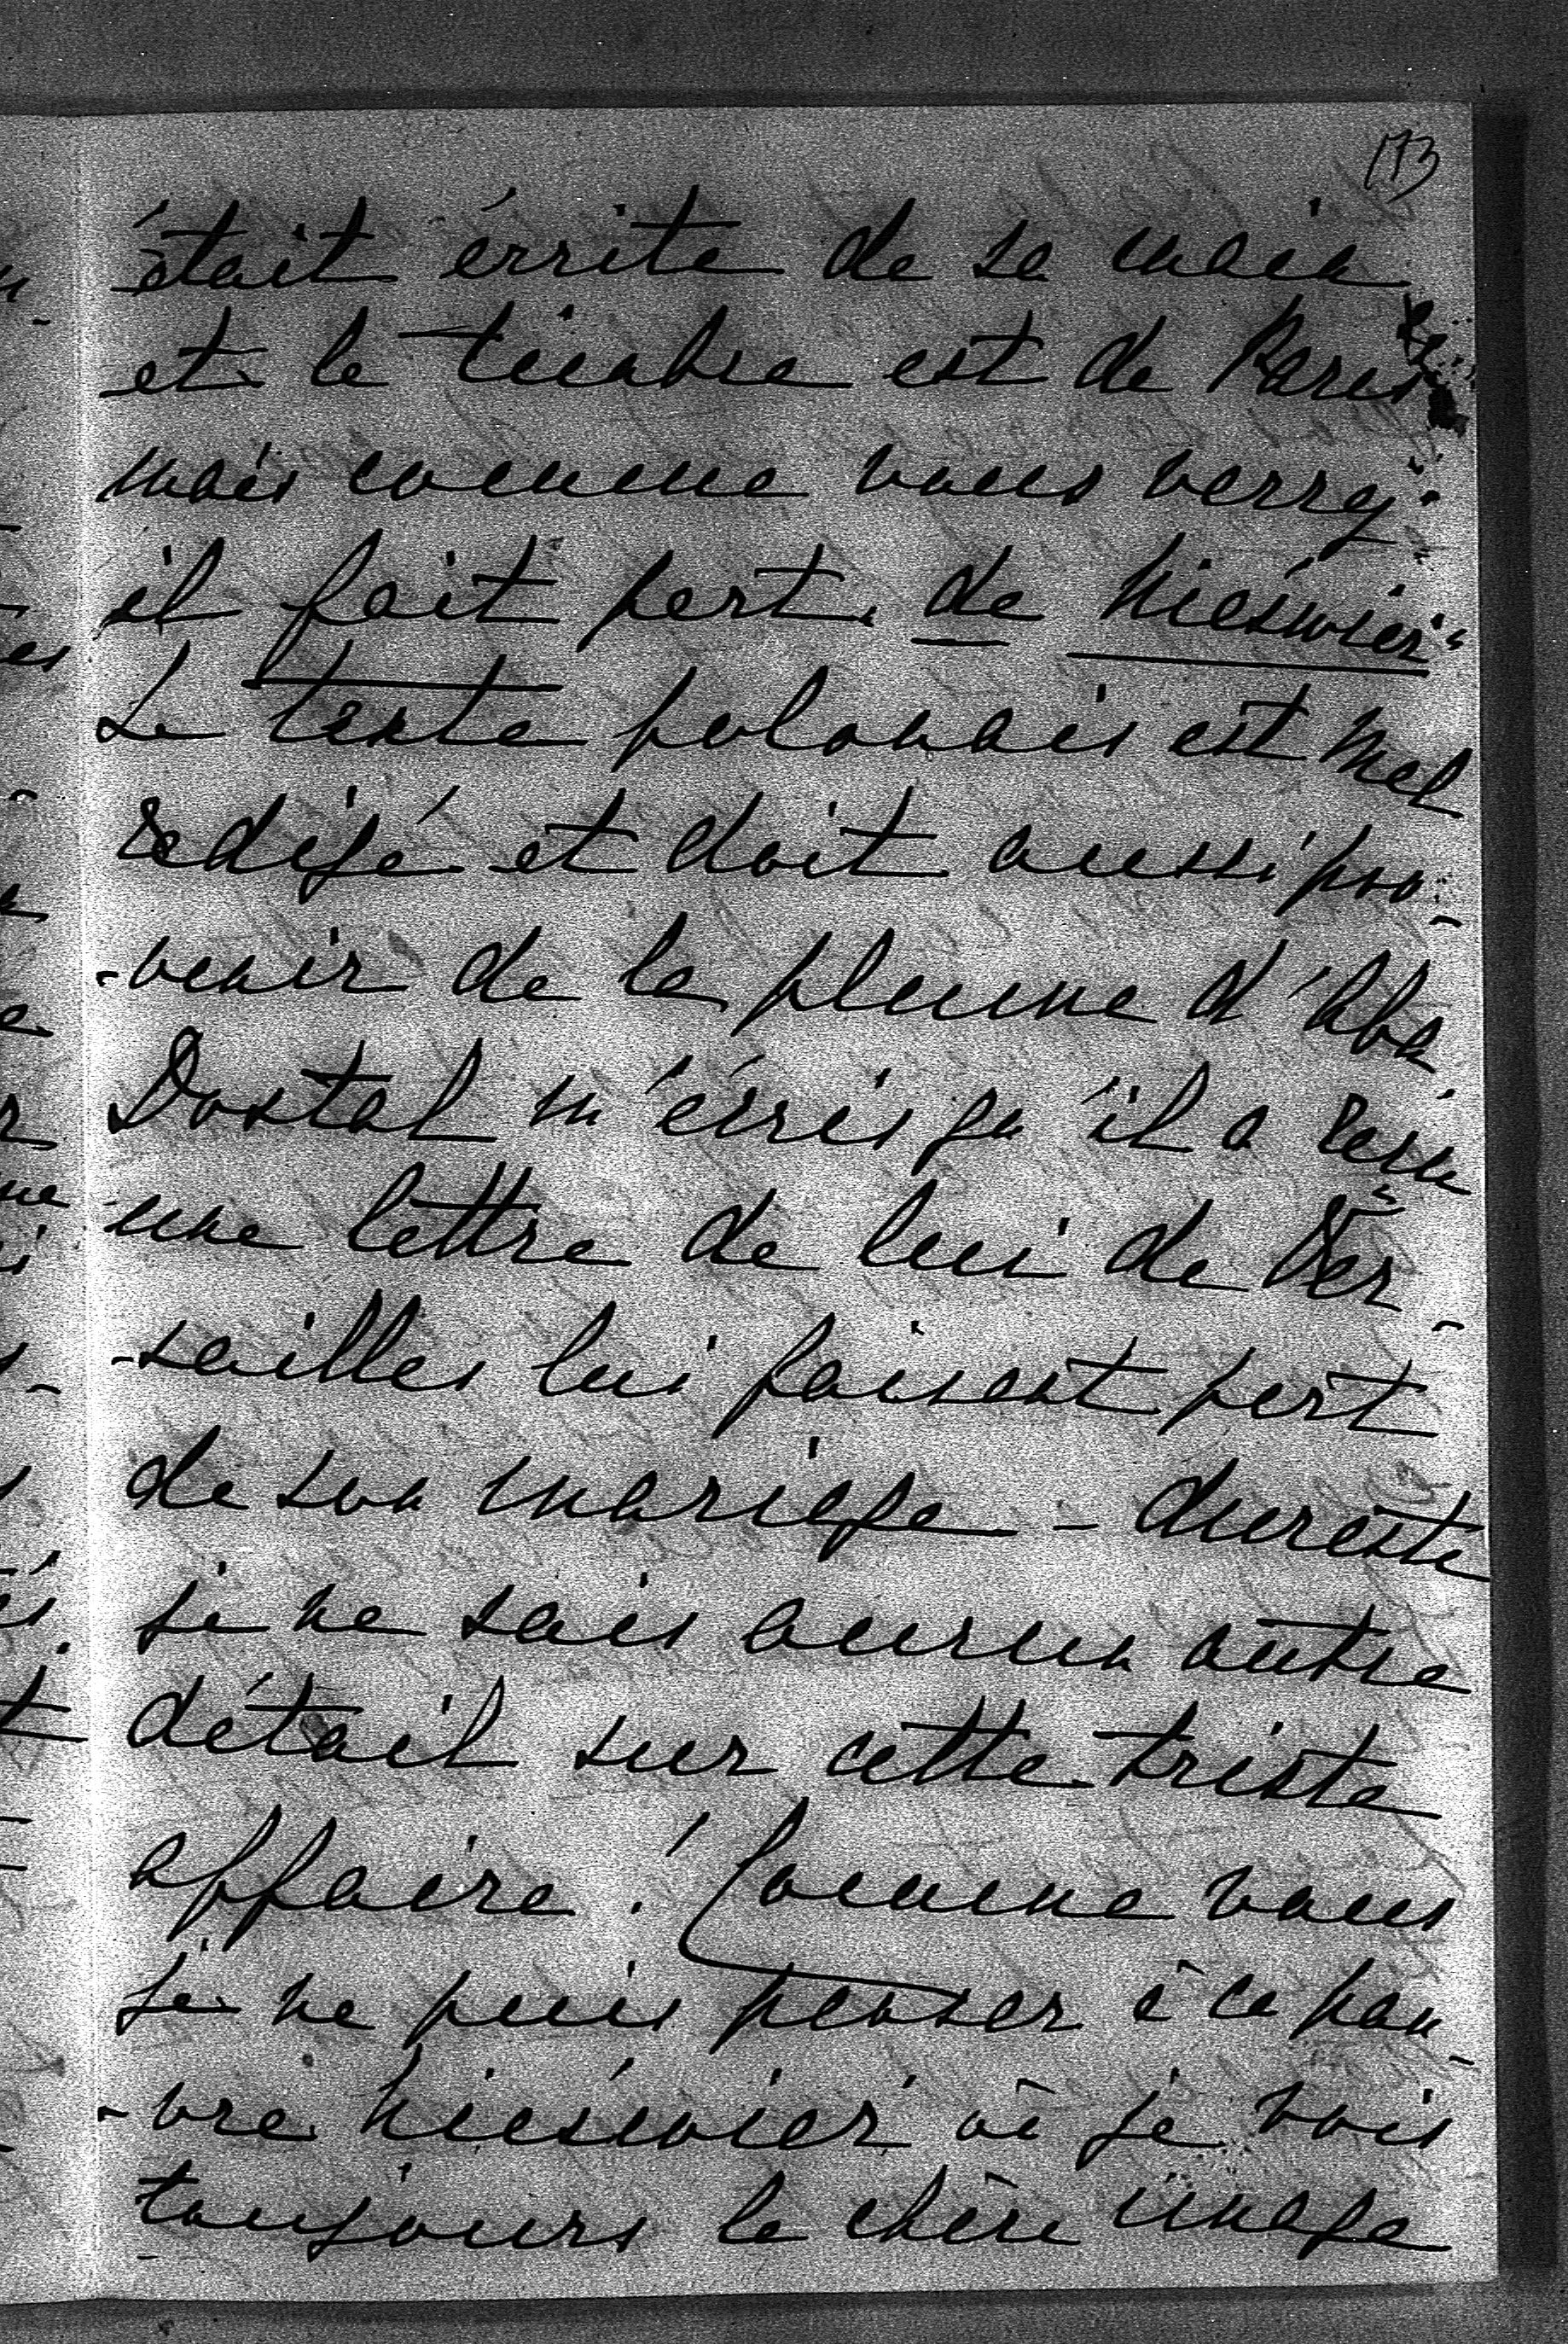 173
était écrite de sa main
et le timbre est de Paris
mais comme vous verrez
il fait part de Nieśwież
Le texte polonais est mal
redigé et doit aussi pro-
-venir de la plume d'Aba
Dostal m'écris qu'il a reçu
une lettre de lui de Ver-
-sailles lui faisant part
de son mariage - dureste
je ne sais aucun autre
détail sur cette triste
affaire! Comme vous
je ne puis penser à ce pau-
-vre Nieśwież où je vois
toujours la chère image